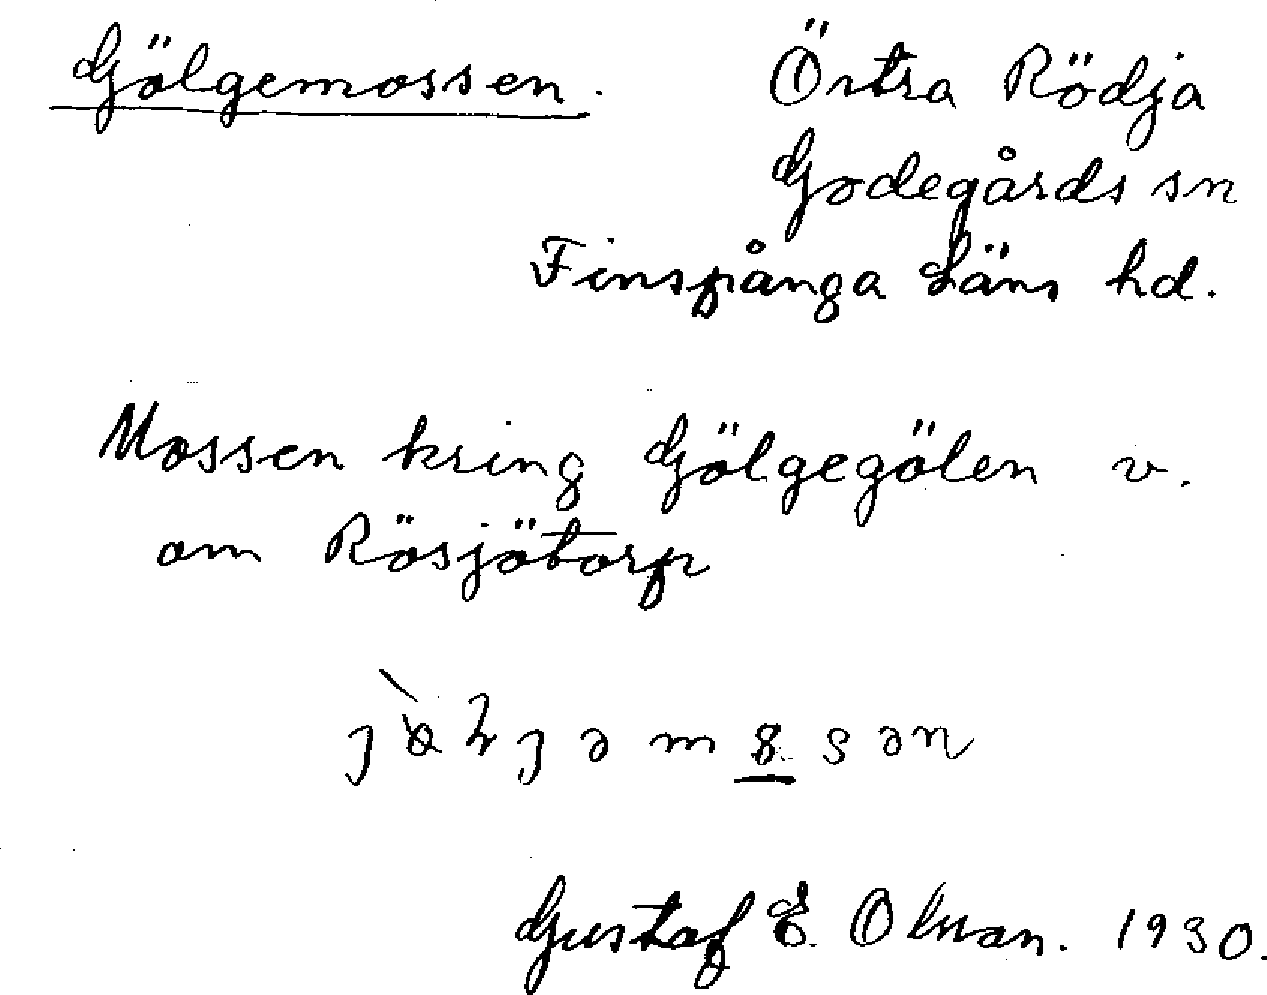 Gölgemossen. Östra Rödja
Godegårds sn
Finspånga Läns hd.
Mossen kring Gölgegölen v.
om Rösjötorp
Gustaf E. Olsson. 1930.